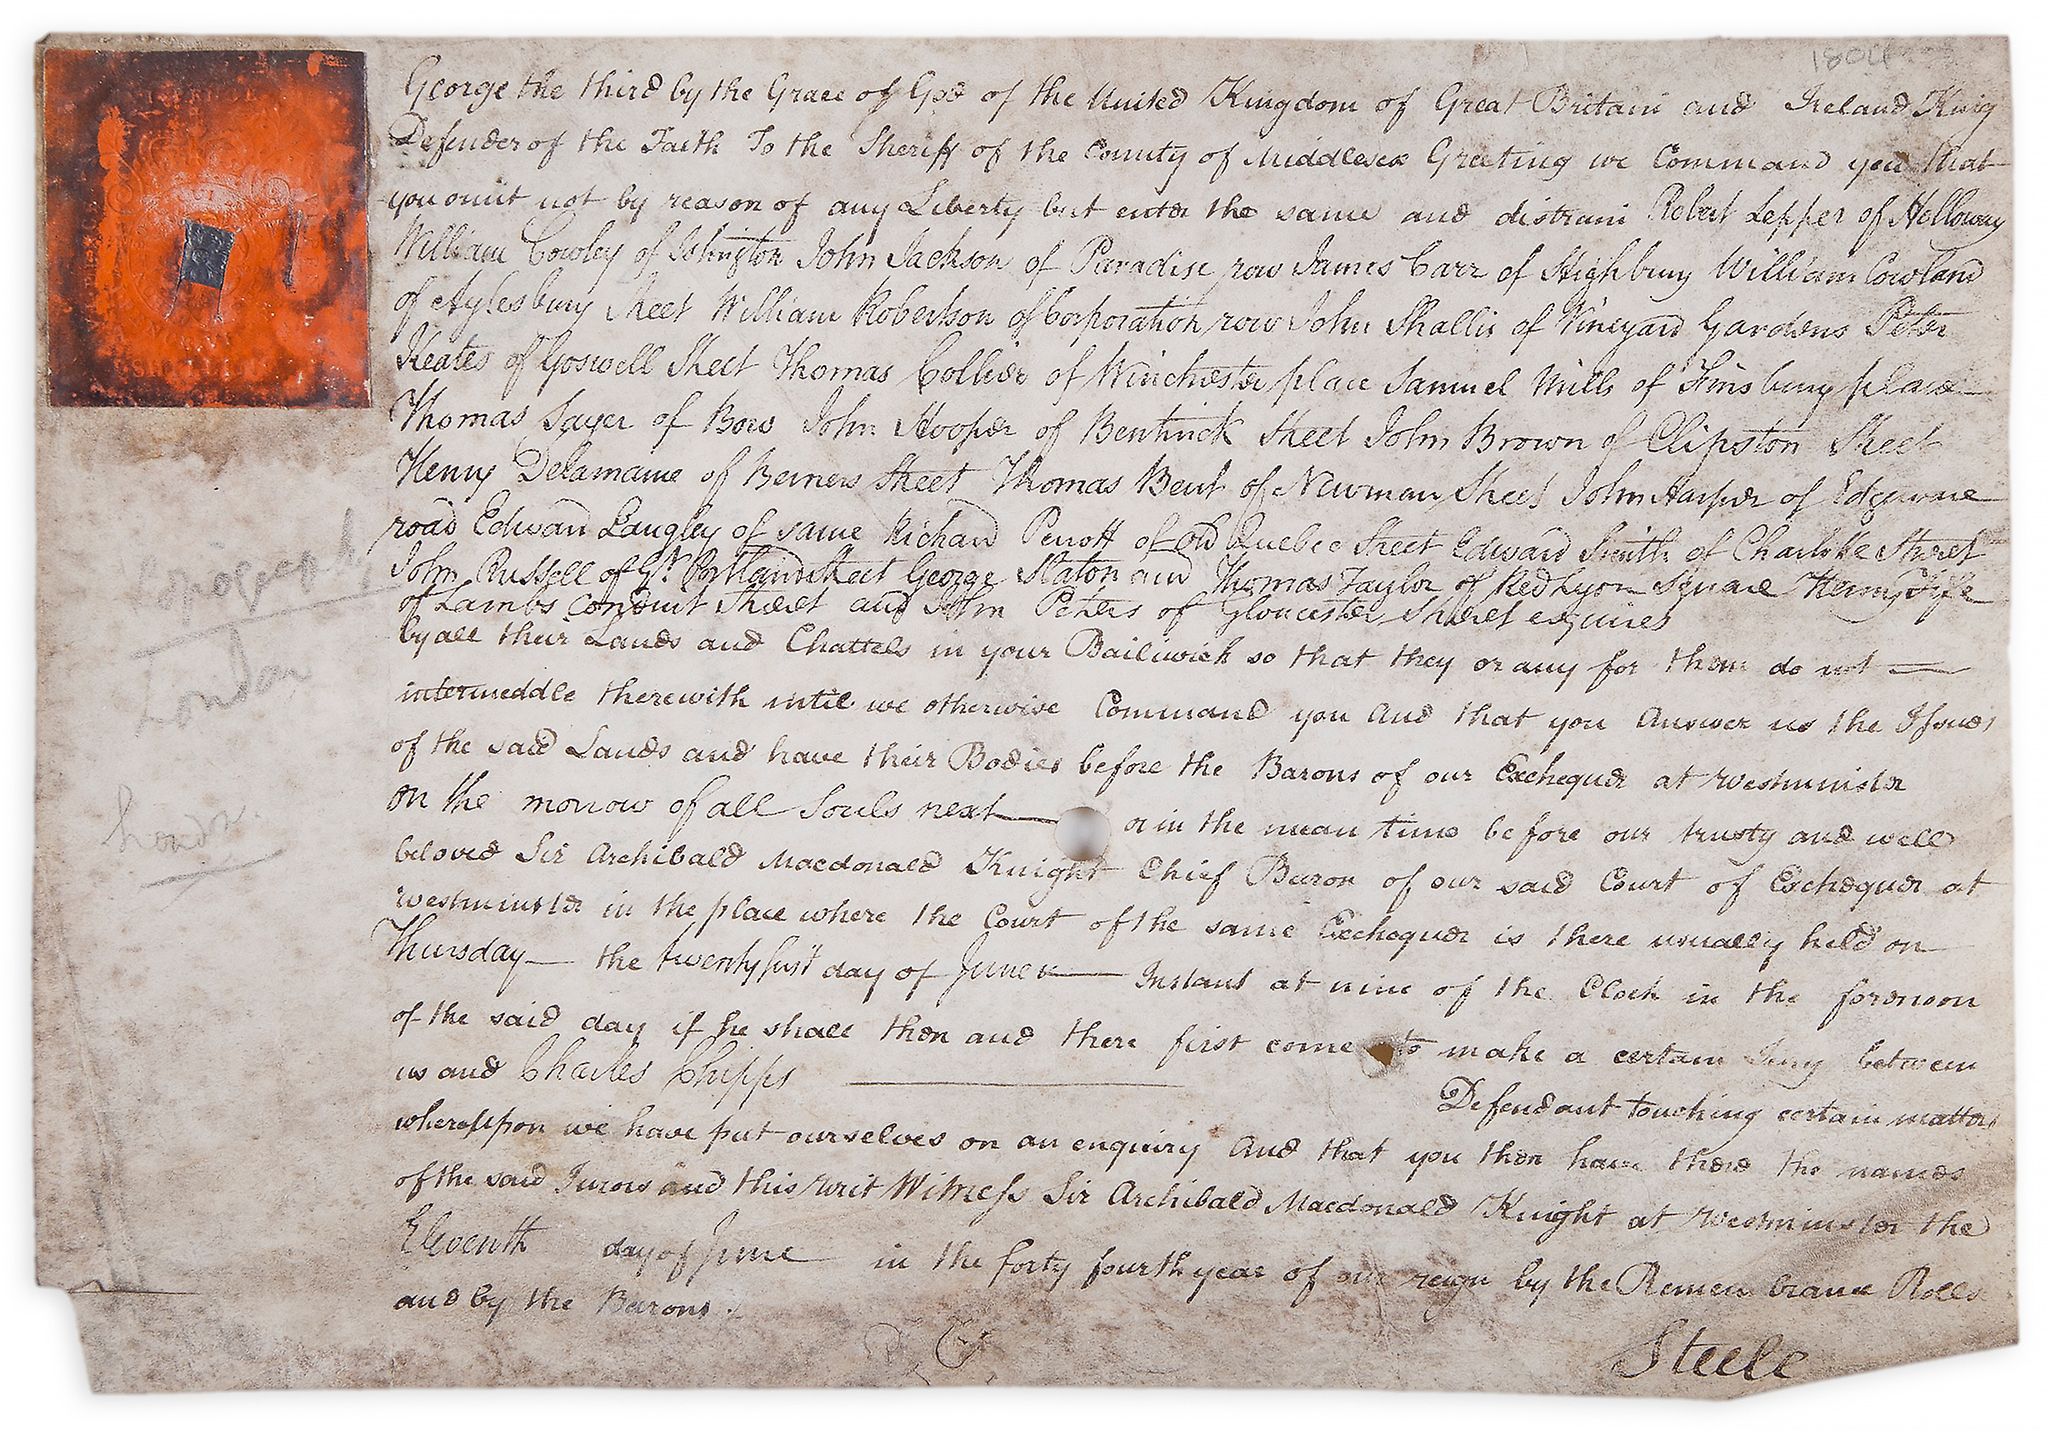 1804
George the third by the Grace of God of the United Kingdom of Great Britain and Ireland King
Defender of the Faith To the Sheriff of the County of Middlesex Greeting we Command you that
you omit not by reason of any Liberty but enter the same and distrain Robert Lepper of Holloway
William Cowley of Islington John Jackson of Paradise row James Carr of Highbury William Cowland
of Aylesbury Street William Robertson of Corporation row John Shallis of Vineyard Gardens Peter
Keates of Goswell Street Thomas Collier of Winchester place Samuel Mills of Finsbury place
Thomas Sayer of Bow John Hooper of Bentinck Street John Brown of Clipston Street
Henry Delamaine of Berners Street Thomas Bent of Newman Street John Harper of Edgware
road Edward Langley of same Richard Perrott of Old Quebec Street Edward Smith of Charlotte Street
John Russell of Gt. Portland Street George Slaton and Thomas Taylor of Red Lyon Square Henry Fife
of Lambs Conduit Street and John Peters of Gloucester Street esquires
by all their Lands and Chattels in your Bailiwick so that they or any for them do not
intermeddle therewith until we otherwise Command you And that you Answer us the Issues
of the said Lands and have their Bodies before the Barons of our Exchequer at Westminster
on the morrow of all Souls next or in the mean time before our trusty and well
beloved Sir Archibald Macdonald Knight Chief Baron of our said Court of Exchequer at
Westminster in the place where the Court of the same Exchequer is there usually held on
Thursday the twenty first day of June Instant at nine of the Clock in the forenoon
of the said day if he shall then and there first come to make a certain Jury between
us and Charles Chipps
Defendant touching certain matters
whereupon we have put ourselves on an enquiry And that you then have there the names
of the said Jurors and this writ Witness Sir Archibald Macdonald Knight at Westminster the
Eleventh day of June in the forty fourth year of our reign by the Remembrance Rolls
and by the Barons.
Steele
London